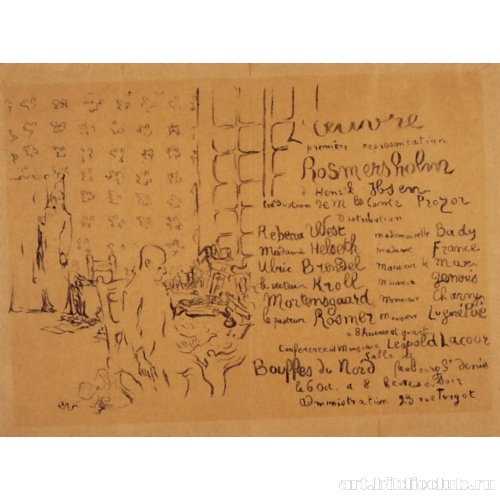 L'œuvre
première représentation
Rosmersholm
d'Henrik Ibsen
traduction de M le Comte Prozor
Distribution
Rebecca West mademoiselle Bady
Madame Helseth madame France
Ulric Brendel Monsieur
le recteur Kroll Monsieur
Mortensgaard Monsieur Charny
le pasteur Rosmer Monsieur Lugné Poe
à 8 heures et quart
Conférence de Monsieur Léopold Lacour
Salle des
Bouffes du Nord faubourg St denis
le 6 Oct. a 8 heures du soir
administration 23 rue Turgot
art.biblioclub.ru